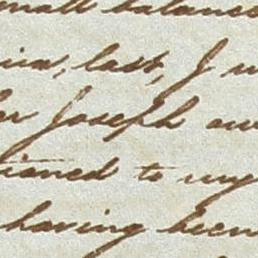 small balance
last, I
Joseph
tioned to my
having been